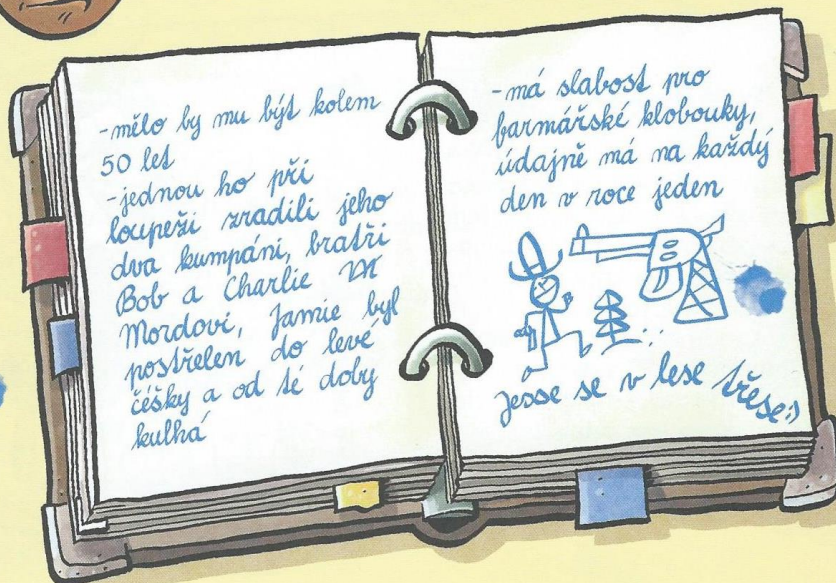 -mělo by mu být kolem
50 let
-jednou ho při
loupeži zradili jeho
dva kumpáni, bratři
Bob a Charlie
Mordovi, Jamie byl
postřelen do levé
čéšky a od té doby
kulhá
-má slabost pro
farmářské klobouky,
údajně má na každý
den v roce jeden
Jesse se v lese třese:)